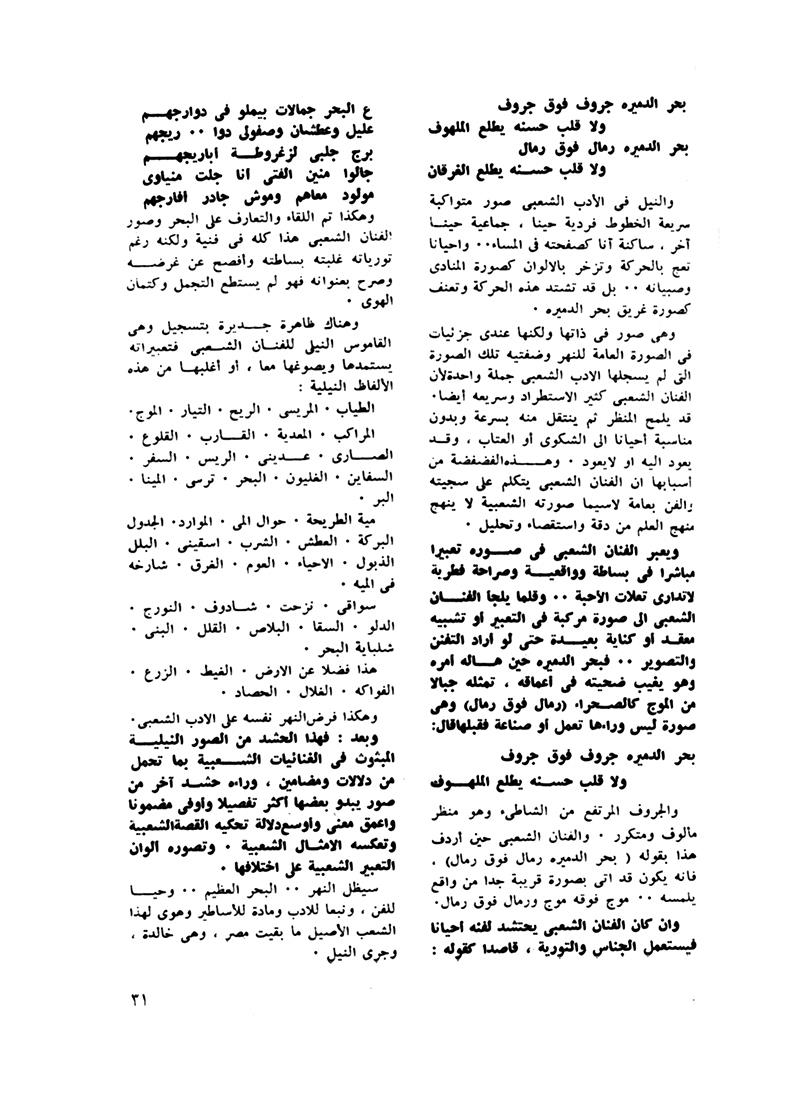 بحر الدميره جروف فوق جروف
ولا قلب حسنه يطلع الملهوف
بحر الدميره رمال فوق رمال
ولا قلب حسنه يطلع الغرقان
والنيل فى الأدب الشعبى صور متواكبة
سريعة الخطوط فردية حينا ، جماعية حينا
آخر ، ساكنة أنا كصفحته فى المساء٠٠ واحيانا
تعج بالحركة وتزخر بالالوان كصورة المنادى
وصبيانه ٠٠ بل قد تشتد هذه الحركة وتعنف
كصورة غريق بحر الدميره ٠
وهى صور فى ذاتها ولكنها عندى جزئيات
فى الصورة العامة للنهر وضفتيه تلك الصورة
التى لم يسجلها الادب الشعبى جملة واحدةلأن
الفنان الشعبى كثير الاستطراد وسريعه أيضا٠
قد يلمح المنظر ثم ينتقل منه بسرعة وبدون
مناسبة أحيانا الى الشكوى أو العتاب ، وقد
يعود اليه او لايعود ٠ وهذهالفضفضة من
أسبابها ان الفنان الشعبى يتكلم على سجيته
والفن بعامة لاسيما صورته الشعبية لا ينهج
منهج العلم من دقة واستقصاء وتحليل ٠
ويعبر الفنان الشعبى فى صوره تعبيرا
مباشرا فى بساطة وواقعية وصراحة فطرية
لاتدارى تعلات الأحبة ٠٠ وقلما يلجأ الفنان
الشعبى الى صورة مركبة فى التعبير أو تشبيه
معقد أو كناية بعيدة حتى لو أراد التفنن
والتصوير ٠٠ فبحر الدميره حين هاله أمره
وهو يغيب ضحيته فى أعماقه ، تمثله جبالا
من الموج كالصحراء (رمال فوق رمال) وهى
صورة ليس وراءها تعمل أو صناعة فقبلهاقال:
بحر الدميره جروف فوق جروف
ولا قلب حسنه يطلع الملهوف
والجروف المرتفع من الشاطىء وهو منظر
مألوف ومتكرر ٠ والفنان الشعبى حين أردف
هذا بقوله ( بحر الدميره رمال فوق رمال) ،
فانه يكون قد اتى بصورة قريبة جدا من واقع
يلمسه ٠٠ موج فوقه موج ورمال فوق رمال٠
وان كان الفنان الشعبى يحتشد لفنه أحيانا
فيستعمل الجناس والتورية ، قاصدا كقوله :
ع البحر جمالات بيملو فى دوارجهم
عليل وعطشان وصفولى دوا ٠٠ ريجهم
برج جلبى لزغروطة أباريجهم
جالوا منين الفتى أنا جلت منياوى
مولود معاهم وموش جادر أفارجهم
وهكذا تم اللقاء والتعارف على البحر وصور
الفنان الشعبى هذا كله فى فنية ولكنه رغم
تورياته غلبته بساطته وأفصح عن غرضه
وصرح بعنوانه فهو لم يستطع التجمل وكتمان
الهوى ٠
وهناك ظاهرة جديرة بتسجيل وهى
القاموس النيلى للفنان الشعبى فتعبيراته
يستمدها ويصوغها معا ، أو أغلبها من هذه
الألفاظ النيلية :
الطياب ٠ المريسى ٠ الريح ٠ التيار ٠ الموج٠
المراكب ٠ المعدية ٠ القارب ٠ القلوع ٠
الصارى ٠ عدينى ٠ الريس ٠ السفر ٠
السفاين ٠ الغليون ٠ البحر ٠ ترسى ٠ المينا ٠
البر ٠
مية الطريحة ٠ حوال المى ٠ الموارد٠ الجدول
البركة ٠ العطش ٠ الشرب ٠ اسقينى ٠ البلل
الذبول ٠ الاحياء ٠ العوم ٠ الغرق ٠ شارخه
فى الميه ٠
سواقى ٠ نزحت ٠ شادوف ٠ النورج ٠
الدلو ٠ السقا ٠ البلاص ٠ القلل ٠ البنى ٠
شلباية البحر ٠
هذا فضلا عن الارض ٠ الغيط ٠ الزرع ٠
الفواكه ٠ الغلال ٠ الحصاد ٠
وهكذا فرض النهر نفسه على الادب الشعبى٠
وبعد : فهذا الحشد من الصور النيلية
المبثوث فى الغنائيات الشعبية بما تحمل
من دلالات ومضامين ، وراءه حشد آخر من
صور يبدو بعضها أكثر تفصيلا وأوفى مضمونا
وأعمق معنى وأوسع دلالة تحكيه القصة الشعبية
وتعكسه الامثال الشعبية ٠ وتصوره ألوان
التعبير الشعبية على اختلافها ٠
سيظل النهر ٠٠ البحر العظيم ٠٠ وحيا
للفن ، ونبعا للادب ومادة للأساطير وهوى لهذا
الشعب الأصيل ما بقيت مصر ، وهى خالدة ،
وجرى النيل ٠
٣١